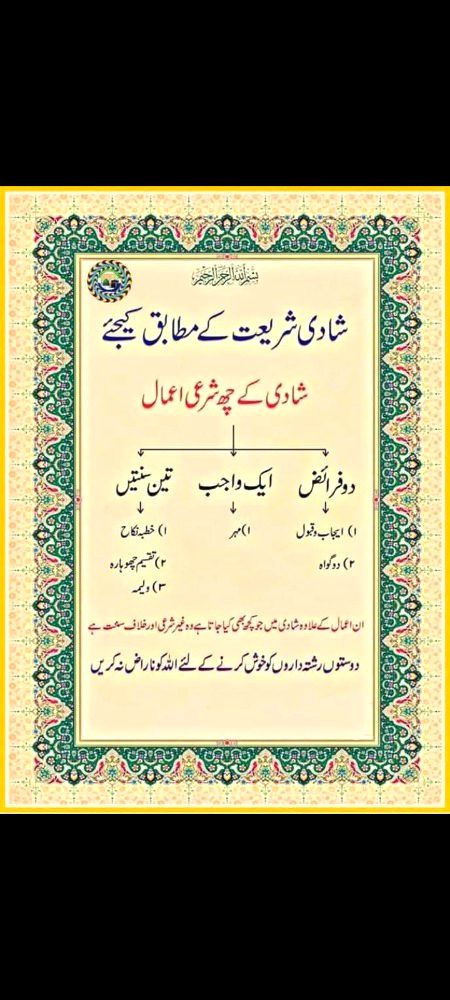 بسم اللہ الرحمن الرحیم
شادی شریعت کے مطابق کیجئے
شادی کے چھ شرعی اعمال
دو فرائض
ایک واجب
تین سنتیں
۱) ایجاب و قبول
۱) مہر
۱) خطبہ نکاح
۲) دو گواہ
۲) تقسیم چھوہارہ
۳) ولیمہ
ان اعمال کے علاوہ شادی میں جو کچھ بھی کیا جاتا ہے وہ غیر شرعی اور خلاف سنت ہے
دوستوں رشتہ داروں کو خوش کرنے کے لئے اللہ کو ناراض نہ کریں